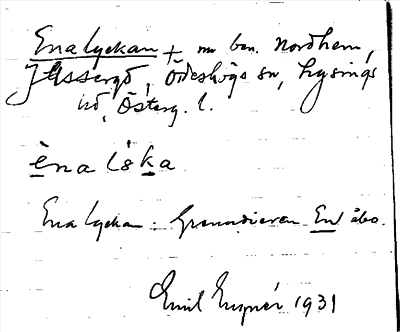 Enalyckan + nu ben. Nordhem,
Jussergd, Ödeshögs sn, Lysings
hd, Österg. l.
ena lska
Enalyckan: Grannbyaren En åbo.
Emil 1931